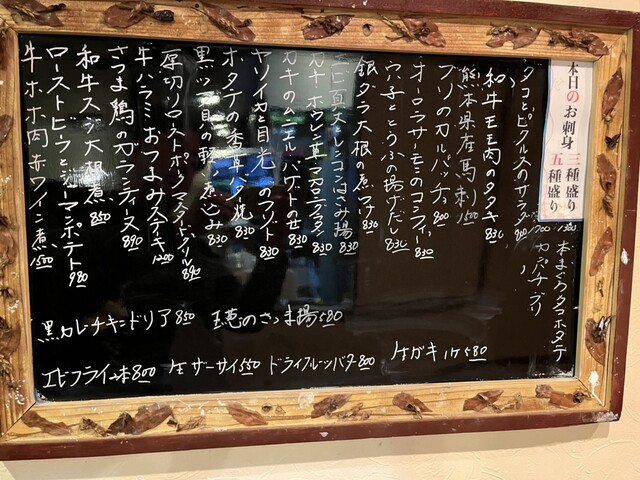 本日のお刺身
三種盛り
五種盛り
1300
1700
本まぐろ タコ ホタテ
カンパチ ブリ
タコとピクルスのサラダ 900
和牛モモ肉のタタキ 830
熊本県産馬刺 1500
ブリのカルパッチョ 900
オーロラサーモンのコンフィ 830
穴子ととうふの揚げだし 830
銀ダラ大根の煮つけ 830
エビ真丈レンコンはさみ揚 830
カキ・ホウレン草マカロニグラタン 830
カキのムニエル
ヤリイカと目光のフリット 830
ホタテの香草バター焼 830
黒ツブ貝の軽い煮こみ 830
厚切りローストポークマスタードグリル 890
牛ハラミおつまみステーキ 1200
さつま鶏のガランティーヌ 890
和牛スジ大根煮 850
ローストビーフとジャーマンポテト 980
牛ホホ肉赤ワイン煮 1500
黒カレーチキンドリア 850
玉葱のさつま揚 580
エビフライ 2本 800
ザーサイ 550
ドライフルーツバター 800
生ガキ 1ケ 580